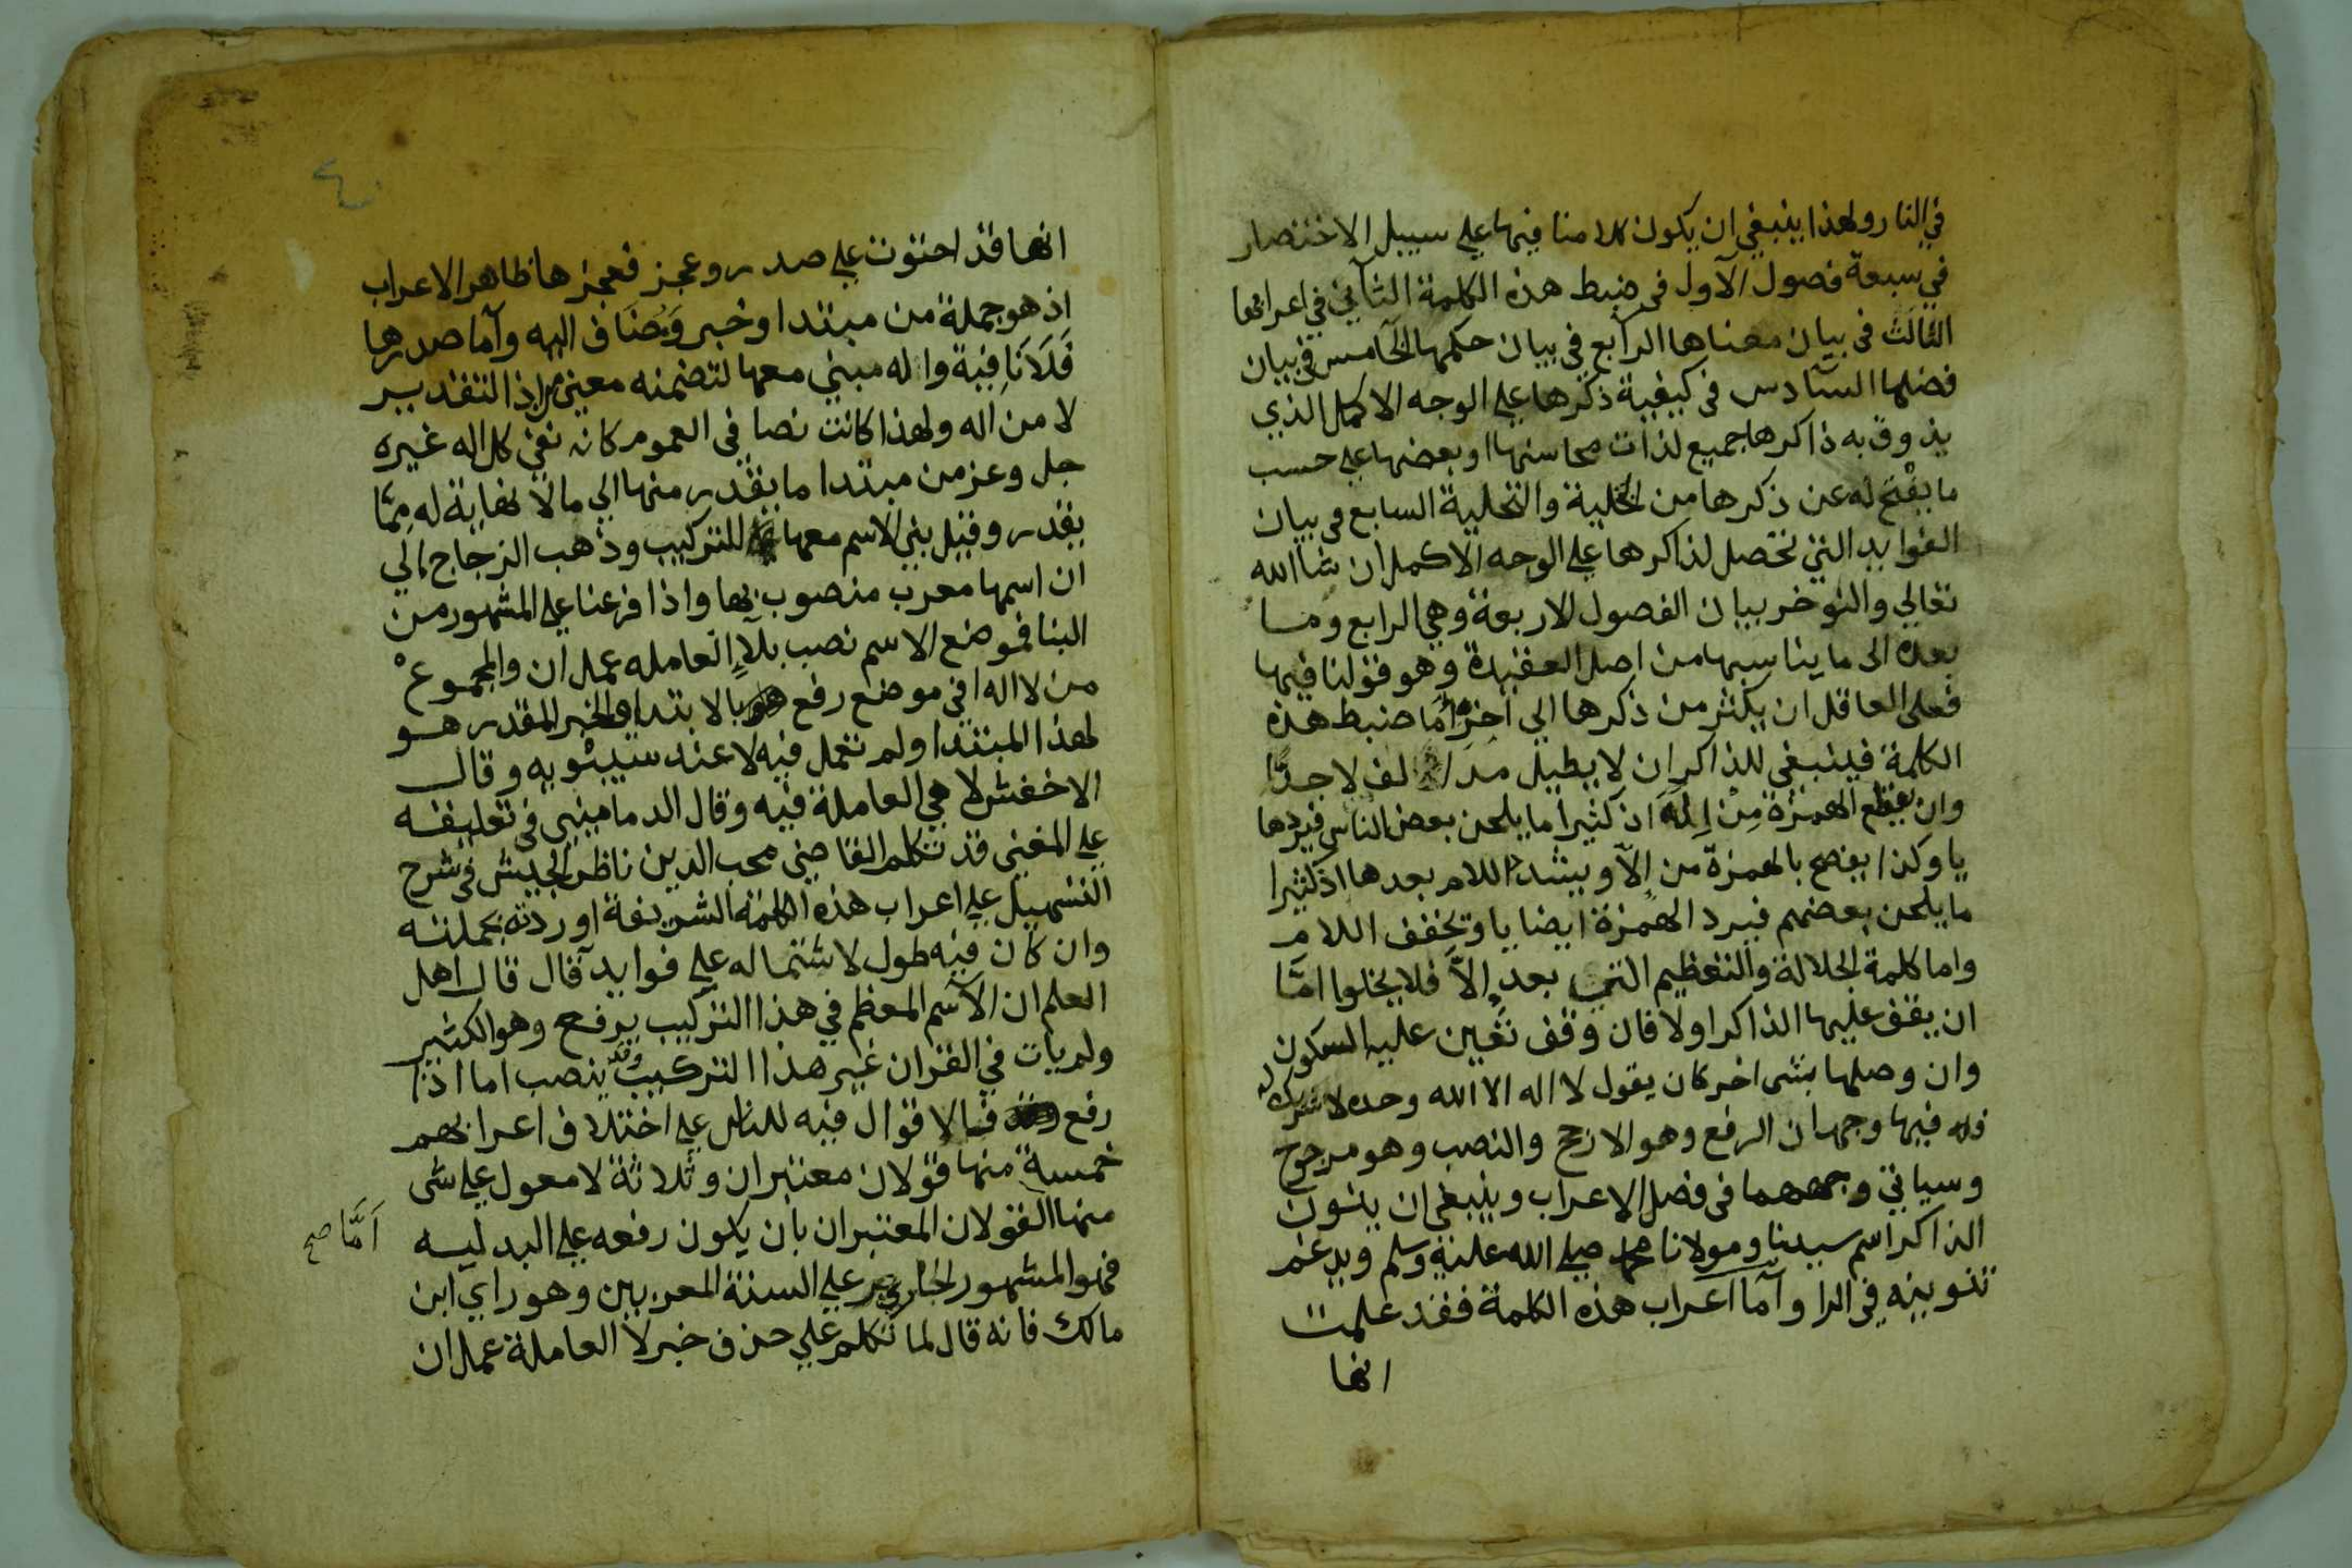 في النار ولهذا ينبغي ان يكون كلامنا فيها علي سبيل الاختصار
في سبعة فصول الآول في ضبط هذه الكلمة الثآني في اعرابها
الثالث في بيان معناها الرآبع في بيان حكمها الخآمس في بيان
فضلها السآدس في كيفية ذكرها علي الوجه الاكمل الذي
يذوق به ذاكرها جميع لذات محاسنها او بعضها علي حسب
ما يفتح له عن ذكرها من التخلية والتحلية السابع في بيان
الفوايد التي تحصل لذاكرها علي الوجه الاكمل ان شا الله
تعالي والنوخر بيان الفصول الاربعة وهي الرابع وما
بعده الى ما يناسبها من اصل العقيدة وهو قولنا فيها
فعلى العاقل ان يكثر من ذكرها الي اخره أما ضبط هذه
الكلمة فينبغي للذاكر ان لا يطيل مد الف لا جدًّا
وان يقطع الهمزة مِنْ إِلَهَ اذ كثيرا ما يلحن بعض الناس فيردها
يا وكذا يفصح بالهمزة من إلآ ويشدد اللام بعدها اذ كثيرا
ما يلحن بعضهم فيرد الهمزة ايضا يا وتخفف اللام
واما كلمة الجلالة والتعظيم التي بعد إلاَّ فلا يخلوا امّا
ان يقف عليها الذاكر اولا فان وقف تعين عليه السكون
وان وصلها بشي اخر كان يقول لا اله الا الله وحده لا شريك له
فله فيها وجهان الرفع وهو الارجح والنصب وهو مرجوح
وسياتي وجههما في فصل الاعراب وينبغي ان ينون
الذاكر اسم سيدنا ومولانا محمد صلي الله عليه وسلم ويدغم
تنوينه في الرا وآما اعراب هذه الكلمة فقد علمت
انها
انها قد احتوت علي صدر وعجز فعجزها ظاهر الاعراب
اذ هو جملة من مبتدا وخبر وَمُضَاف اليه وآما صدرها
فَلَا نَافِية واله مبني معها لتضمنه معني من اذ التقدير
لا من اله ولهذا كانت نصا في العموم كانه نفي كل اله غيره
جل وعز من مبتدا ما يقدر منها الي ما لا نهاية له مِمّا
يقدر وقيل بني الاسم معها للتركيب وذهب الزجاج الي
ان اسمها معرب منصوب بها واذا فرعنا علي المشهور من
البنا فموضع الاسم نصب بلآ العامله عمل ان والمجموع
من لا اله في موضع رفع بالابتدا والخبر المقدر هو
لهذا المبتدا ولم تعمل فيه لا عند سيبويه وقال
الاخفش لا هي العاملة فيه وقال الدماميني في تعليقه
علي المغني قد تكلم القاضي محب الدين ناظر الجيش في شرح
التسهيل علي اعراب هذه الكلمة الشريفة اوردته بجملته
وان كان فيه طول لاشتماله علي فوايد قال قال اهل
العلم ان الآسم المعظم في هذا التركيب يرفع وهو الكثير
ولم يات في القران غير هذا التركيب وقد ينصب اما اذا
رفع فالاقوال فيه للناس علي اختلاف اعرابهم
خمسة منها قولان معتبران وثلاثة لا معول علي شي
منها القولان المعتبران بان يكون رفعه علي البدليه
أمَّا صح
فهو المشهور الجاري علي السنة المعربين وهو راي ابن
مالك فانه قال لما تكلم علي حذف خبر لا العاملة عمل ان